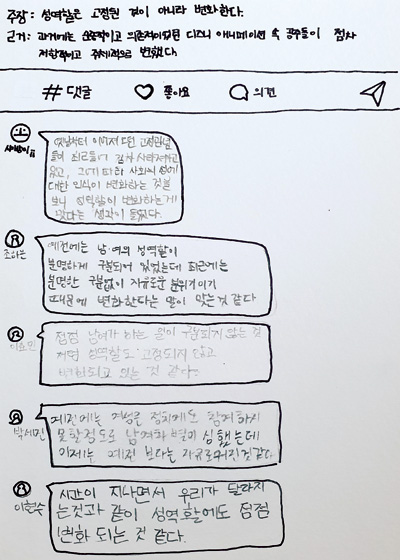 주장: 성역할은 고정된 것이 아니라 변화한다.
근거: 과거에는 순종적이고 의존적이었던 디즈니 애니메이션 속 공주들이 점차
저항적이고 주체적으로 변했다.
# 댓글 좋아요 의견
옛날부터 이어져 오던 고정관념
들이 최근들어 점차 사라져가고
있고, 그에 따라 사회의 성에
대한 인식이 변화하는 것을
보니 성역할이 변화하는게
맞다는 생각이 들었다.
예전에는 남·여의 성역할이
분명하게 구분되어 있었는데 최근에는
분명한 구분없이 자유로운 분위기이기
때문에 변화한다는 말이 맞는것 같다
점점 남여가 하는 일이 구분되지 않는 것
처럼 성역할도 고정되지 않고
변화되고 있는 것 같다.
박세진
예전에는 여성은 정치에도 참여하지
못할정도로 남녀차별이 심했는데
이제는 예전 보다는 자유로워진것같다.
이현수
시간이 지나면서 우리가 달라지
는것과 같이 성역할에도 점점
변화 되는 것 같다.